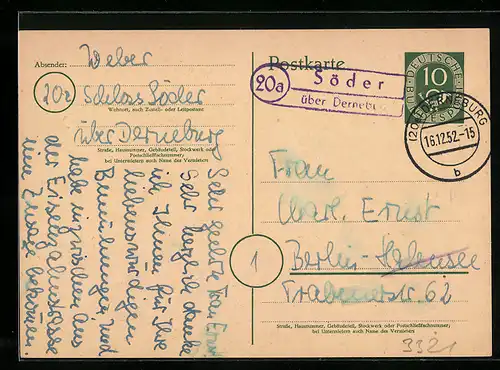 Absender:
Weber
20a
Schloss Söder
Wohnort, auch Zustell- oder Leitpostamt
über Derneburg
Straße, Hausnummer, Gebäudeteil, Stockwerk oder
Postschließfachnummer;
bei Untermietern auch Name des Vermieters
Sehr geehrte Frau Ernst
Sehr herzlich danke
ich Ihnen für Ihre
liebenswürdigen
Bemühungen und
habe inzwischen aus
der Eisenzahnstrasse
eine Zusage bekommen.
Postkarte
20a
Söder
über Derneburg
DEUTSCHE BUNDESPOST
10
(20a) DERNEBURG
16.12.52.-15
b
Frau
Charl. Ernst
1
Berlin-Halensee
Straße, Hausnummer, Gebäudeteil, Stockwerk oder Postschließfachnummer;
bei Untermietern auch Name des Vermieters
3321